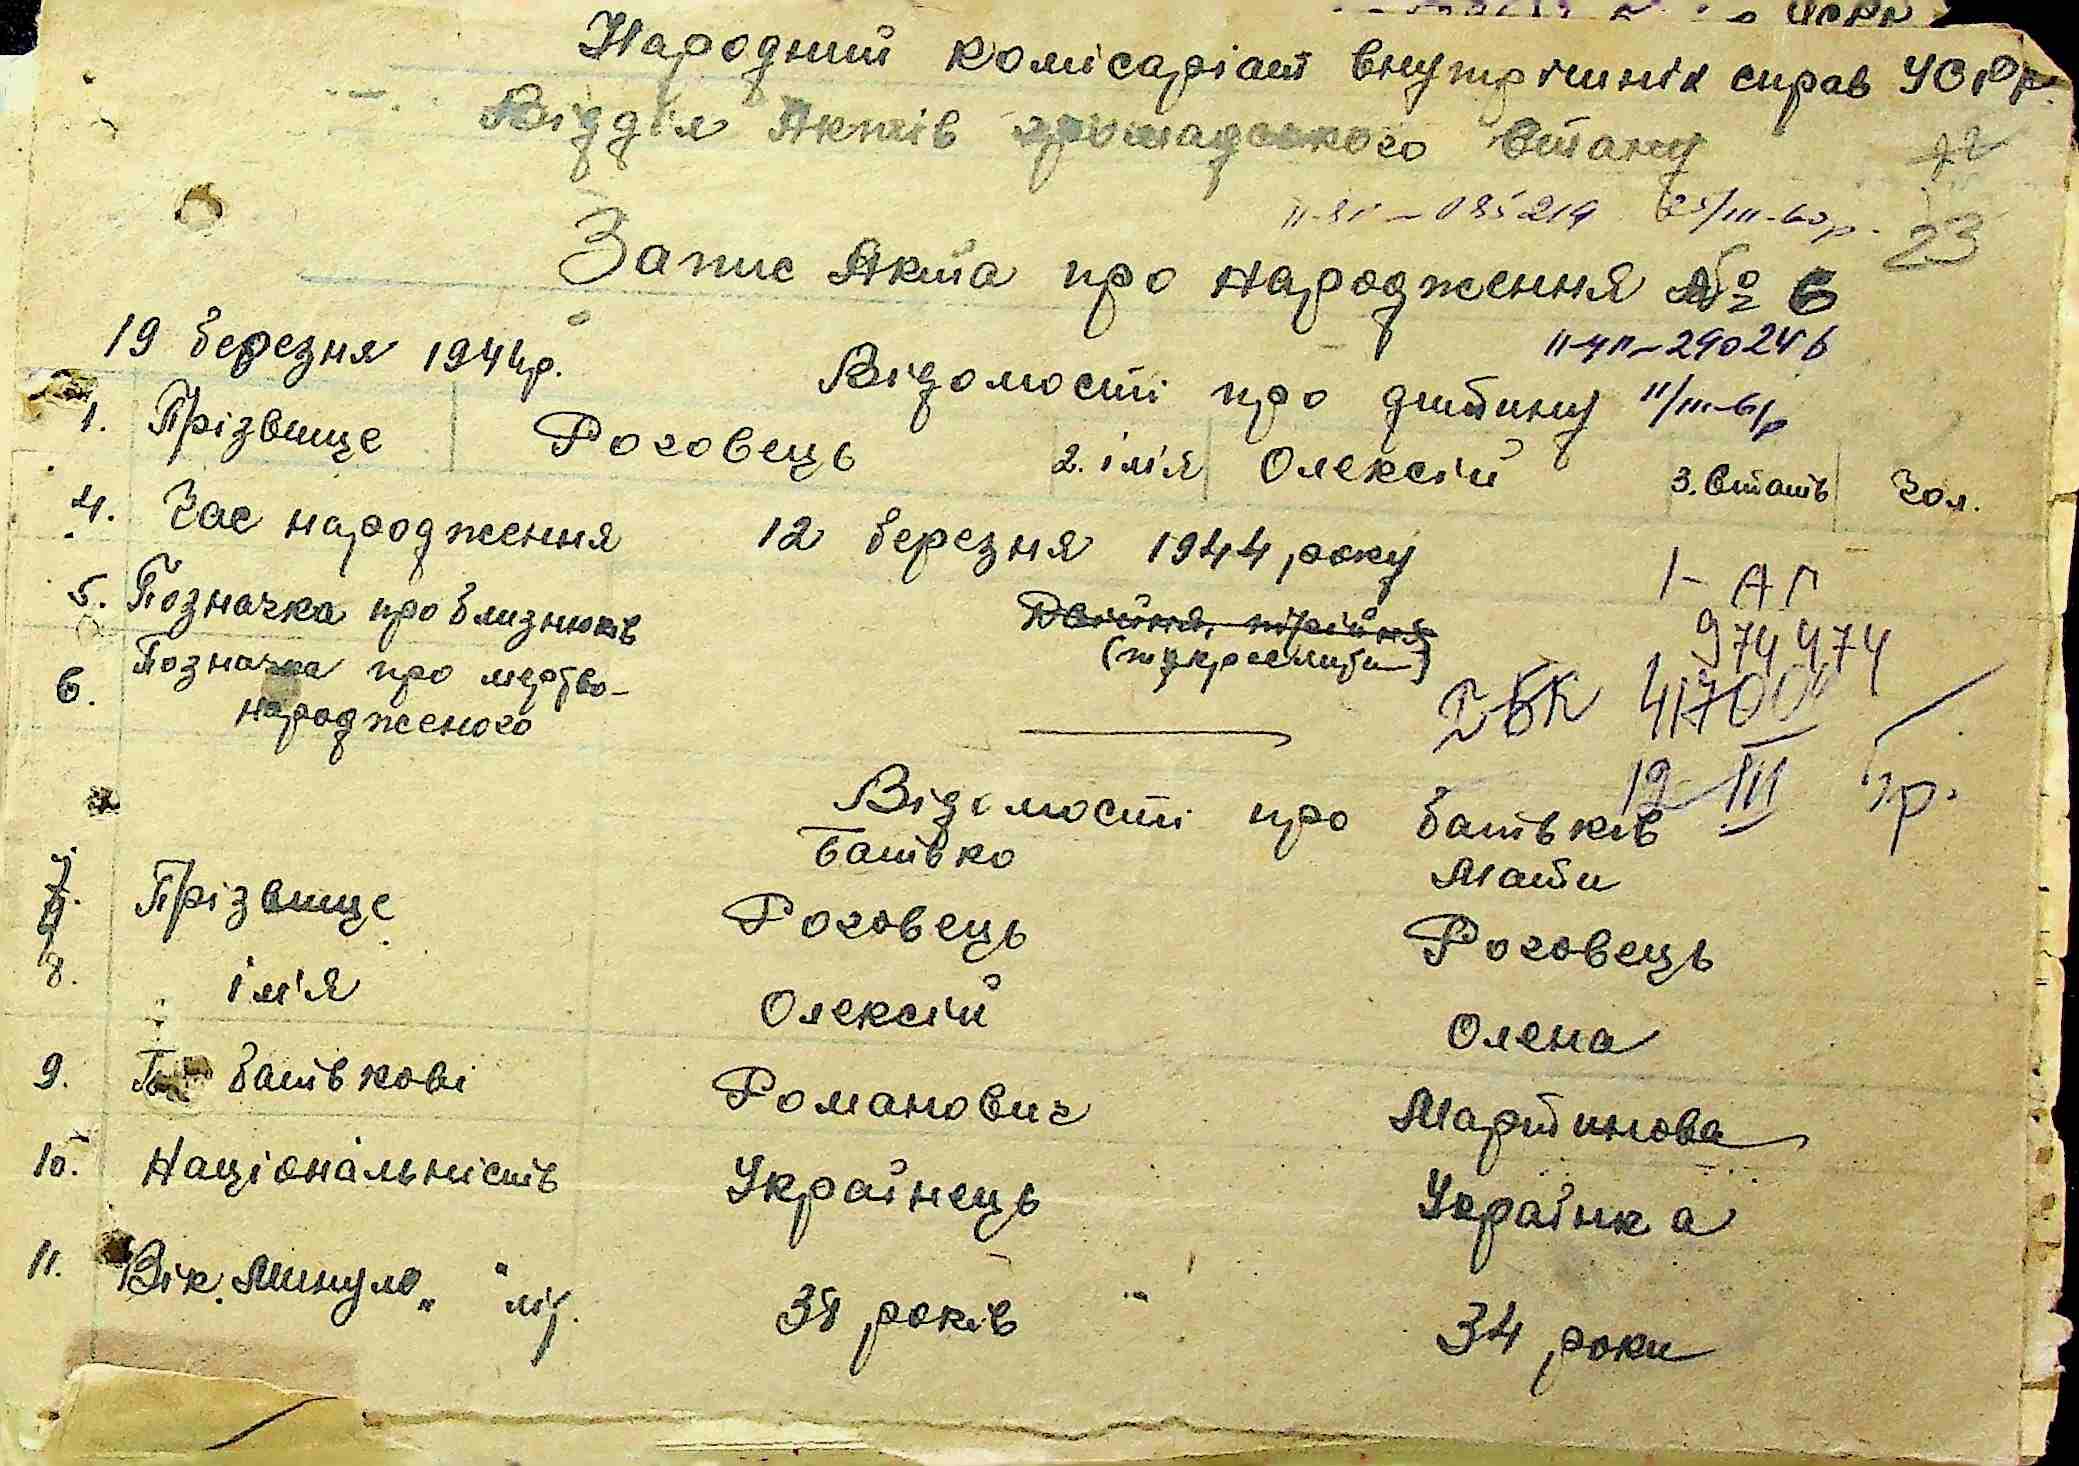 Народний комісаріат внутрішніх справ УСРР.
Відділ Актів громадського Стану
II-ЯП-085219 25/III-60р.
23
Запис Акта про народження № 6
19 березня 1944р.
II-ЧП-290246
Відомості про дитину 11/III-61р
1. Прізвище Роговець 2. ім'я Олексій 3. Стать Чол.
4. Час народження 12 березня 1944 року
I-АП
974474
5. Позначка про близнюків Двійня, трійня
(підкреслити)
6. Позначка про мертво-
народженого
БК 41700
12 III р.
Відомості про батьків
Батько Мати
7. Прізвище Роговець Роговець
8. ім'я Олексій Олена
9. По батькові Романович Мартинова
10. Національність Українець Українка
11. Вік. Минуло „ " літ. 38 років 34 роки